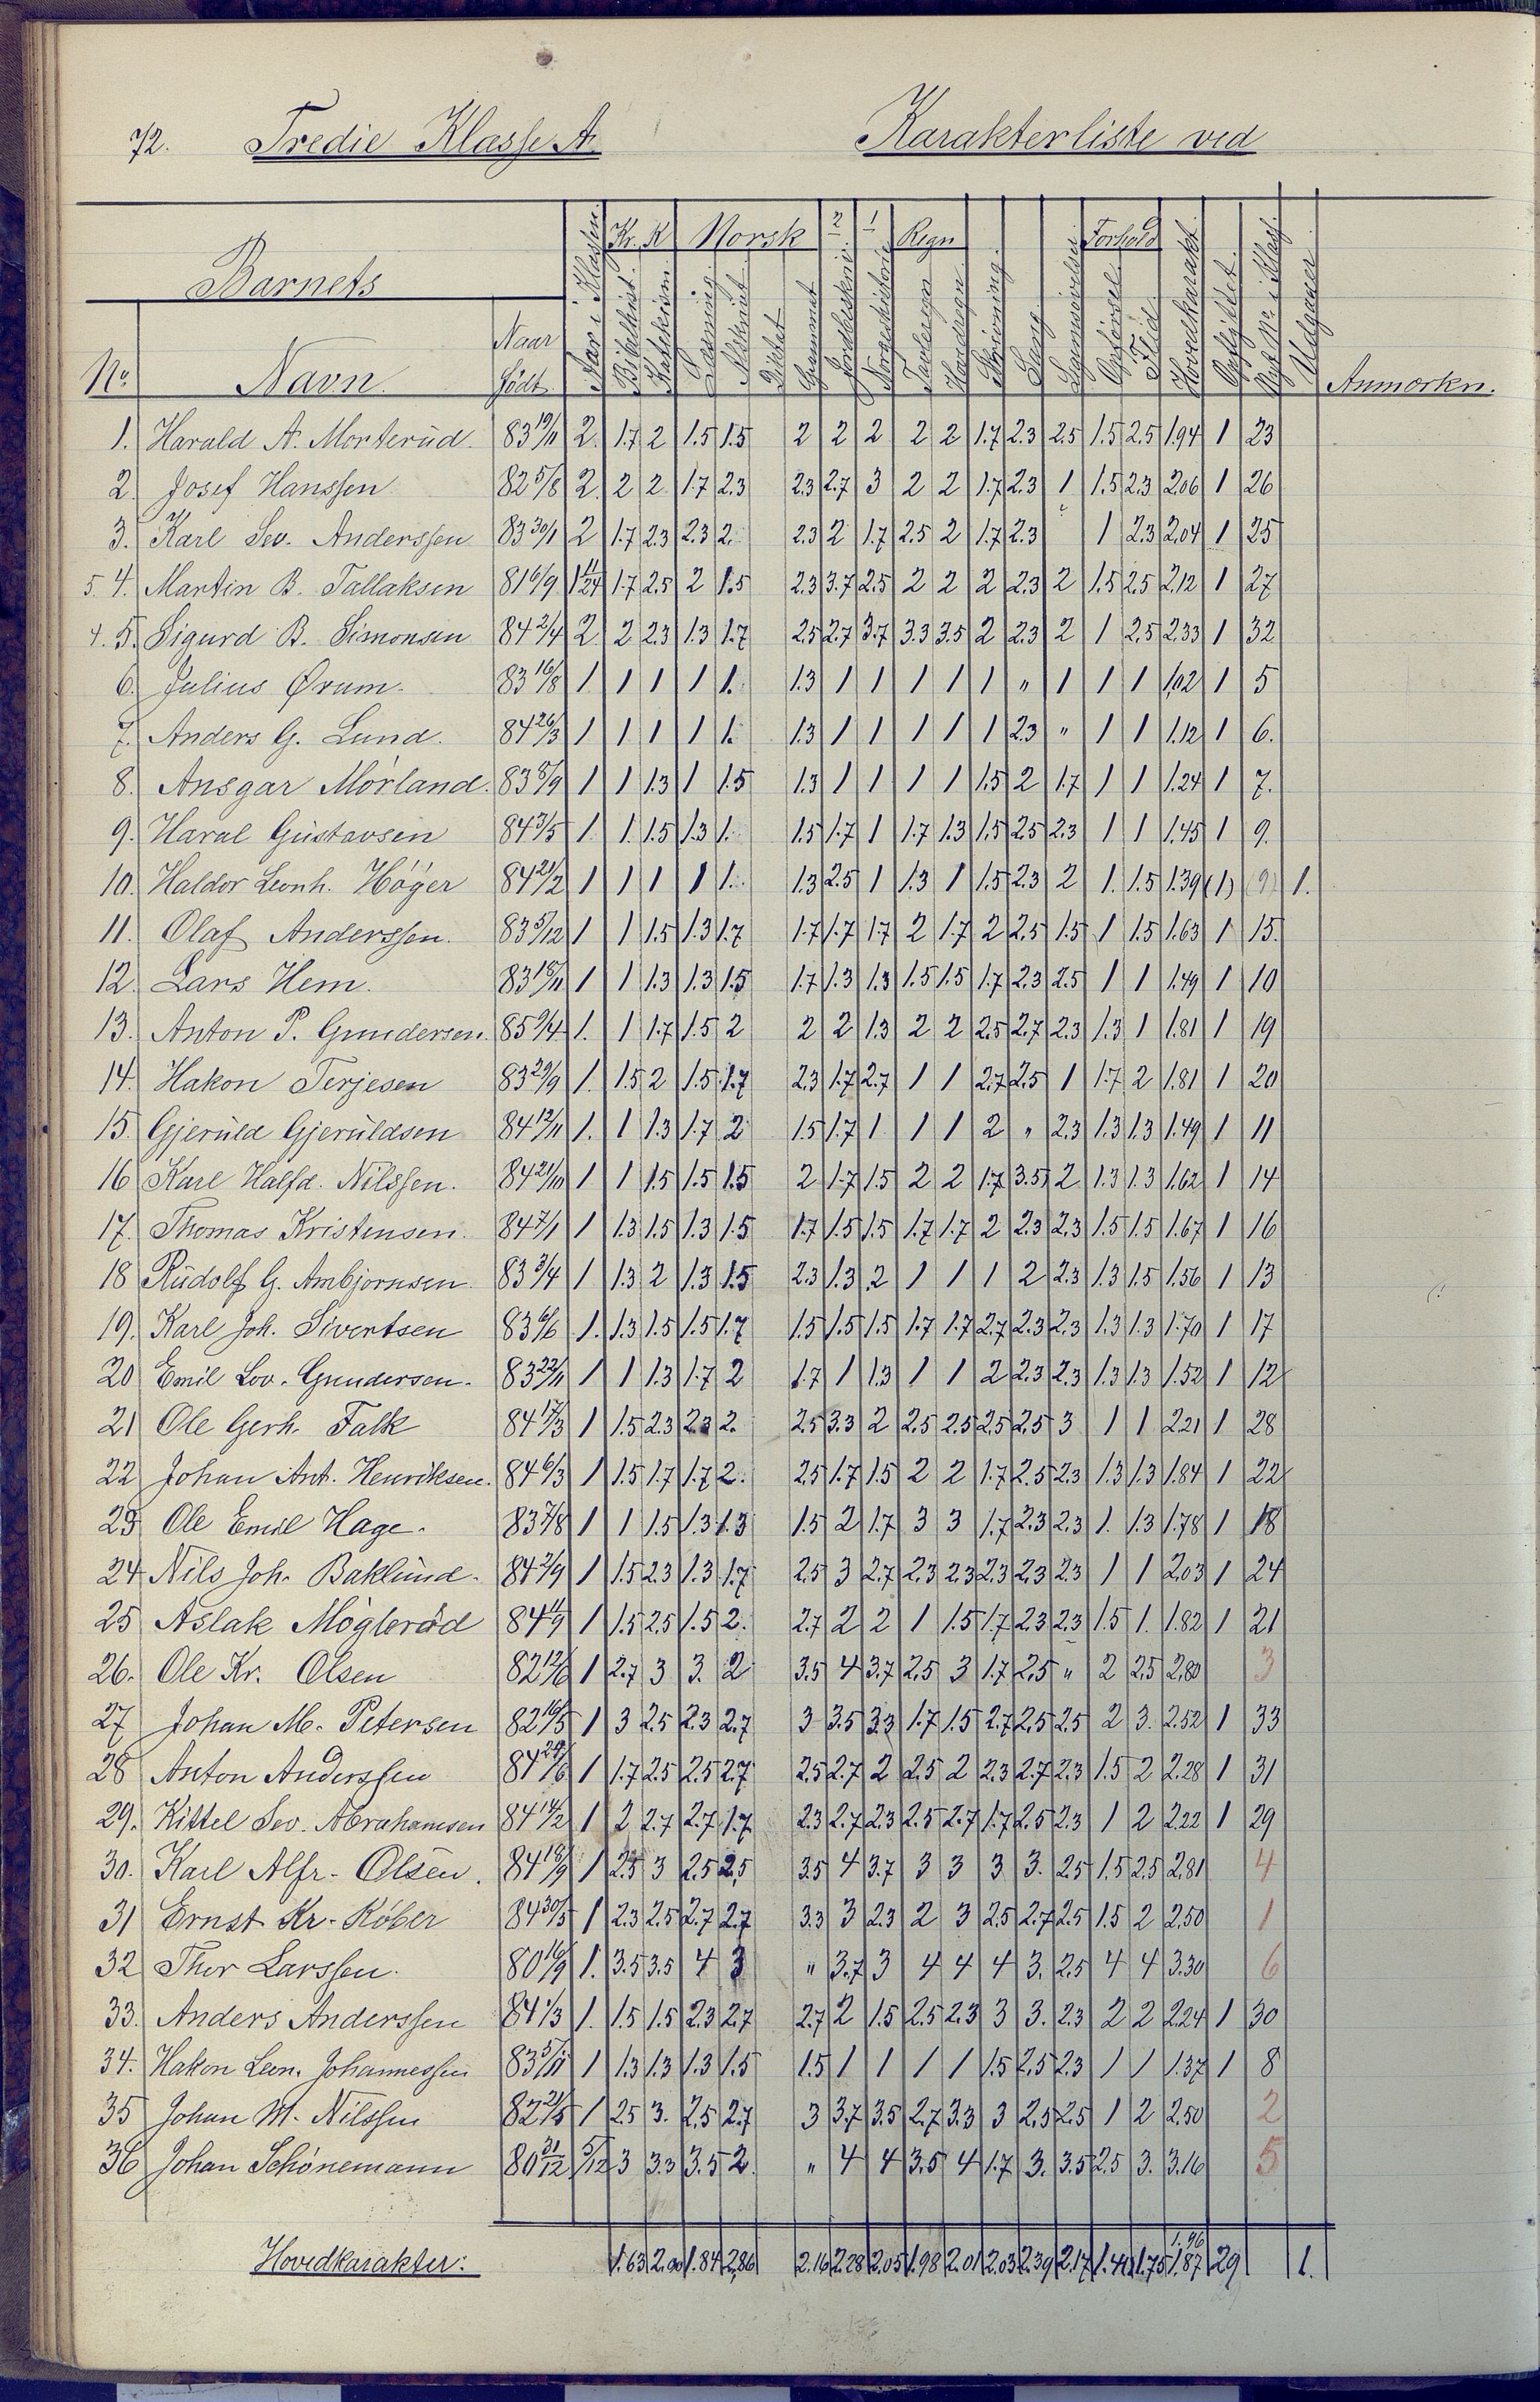 72. Tredie Klasse A. Karakterliste ved
Barnets Kr. K Norsk 2 1 Regn Forhold
No. Navn. Naar født. Aar i Klassen. Bibelhist. Katekism. Læsning. Diktat Grammat Jordbeskriv. Norgeshistorie Tavleregn Hovdregn Skrivning Sang Legemsøvelser Opførsel Flid Hovedkarakt. Opflyttet. Nyt No. i Klass. Udgaaet Anmærkn.
1. Harald A. Morterud 83 19/11 2. 1.7 2 1.5 1.5 2 2 2 2 2 1.7 2.3 2.5 1.5 2.5 1.94 1 23
2. Josef Hanssen 82 5/8 2. 2 2 1.7 2.3 2.3 2.7 3 2 2 1.7 2.3 1 1.5 2.3 2.06 1 26
3. Karl Sev. Anderssen 83 30/1 2 1.7 2.3 2.3 2. 2.3 2 1.7 2.5 2 1.7 2.3 1 2.3 2.04 1 25
5. 4. Martin B. Tallaksen 81 6/9 1 11/24 1.7 2.5 2 1.5 2.3 3.7 2.5 2 2 2 2.3 2 1.5 2.5 2.12 1 27
4. 5. Sigurd B. Simonsen 84 2/4 2. 2 2.3 1.3 1.7 2.5 2.7 3.7 3.3 3.5 2 2.3 2 1 2.5 2.33 1 32
6. Julius Ørum. 83 16/8 1. 1 1 1 1. 1.3 1 1 1 1 1 " 1 1 1 1.02 1 5
7. Anders G. Lund. 84 26/3 1 1 1 1 1. 1.3 1 1 1 1 1 2.3 " 1 1 1.12 1 6.
8. Ansgar Mörland. 83 5/9 1 1 1.3 1 1.5 1.3 1 1 1 1 1.5 2 1.7 1 1 1.24 1 7.
9. Haral Gustavsen 84 3/5 1. 1. 1.5 1.3 1. 1.5 1.7 1 1.7 1.3 1.5 2.5 2.3 1 1 1.45 1 9.
10. Haldor Leonh. Höger 84 21/2 1 1 1 1 1. 1.3 2.5 1 1.3 1 1.5 2.3 2 1. 1.5 1.39 (1) (9) 1.
11. Olaf Anderssen. 83 5/12 1 1 1.5 1.3 1.7 1.7 1.7 1.7 2 1.7 2 2.5 1.5 1 1.5 1.63 1 15.
12. Lars Hem. 83 15/11 1 1 1.3 1.3 1.5 1.7 1.3 1.3 1.5 1.5 1.7 2.3 2.5 1 1 1.49 1 10
13. Anton P. Gundersen. 85 9/4 1. 1 1.7 1.5 2 2 2 1.3 2 2 2.5 2.7 2.3 1.3 1 1.81 1 19
14. Hakon Terjesen 83 29/9 1. 1.5 2 1.5 1.7 2.3 1.7 2.7 1 1 2.7 2.5 1 1.7 2 1.81 1 20
15. Gjeruld Gjeruldsen 84 12/11 1. 1 1.3 1.7 2 1.5 1.7 1 1 1 2 " 2.3 1.3 1.3 1.49 1 11
16 Karl Halfd. Nilssen. 84 21/10 1 1 1.5 1.5 1.5 2 1.7 1.5 2 2 1.7 3.5 2 1.3 1.3 1.62 1 14
17. Thomas Kristensen. 84 7/1 1 1.3 1.5 1.3 1.5 1.7 1.5 1.5 1.7 1.7 2 2.3 2.3 1.5 1.5 1.67 1 16
18 Rudolf G. Ambjornsen. 83 3/4 1 1.3 2 1.3 1.5 2.3 1.3 2 1 1 1 2 2.3 1.3 1.5 1.56 1 13
19. Karl Joh. Sivertsen 83 6/6 1. 1.3 1.5 1.5 1.7 1.5 1.5 1.5 1.7 1.7 2.7 2.3 2.3 1.3 1.3 1.70 1 17
20 Emil Lov. Gundersen. 83 22/11 1 1 1.3 1.7 2 1.7 1 1.3 1 1 2 2.3 2.3 1.3 1.3 1.52 1 12
21 Ole Gerh. Falk 84 17/3 1 1.5 2.3 2.3 2. 2.5 3.3 2 2.5 2.5 2.5 2.5 3 1 1 2.21 1 28
22 Johan Ant. Henriksen. 84 6/3 1 1.5 1.7 1.7 2. 2.5 1.7 1.5 2 2 1.7 2.5 2.3 1.3 1.3 1.84 1 22
23 Ole Emil Hage. 83 7/8 1 1 1.5 1.3 1.3 1.5 2 1.7 3 3 1.7 2.3 2.3 1. 1.3 1.78 1 18
24 Nils Joh. Baklund. 84 2/9 1 1.5 2.3 1.3 1.7 2.5 3 2.7 2.3 2.3 2.3 2.3 2.3 1 1 2.03 1 24
25 Aslak Mögleröd 84 11/9 1 1.5 2.5 1.5 2. 2.7 2 2 1 1.5 1.7 2.3 2.3 1.5 1. 1.82 1 21
26. Ole Kr. Olsen 82 12/6 1 2.7 3 3. 2 3.5 4 3.7 2.5 3 1.7 2.5 " 2 2.5 2.80 3
27 Johan M. Petersen 82 16/5 1 3 2.5 2.3 2.7 3 3.5 3.3 1.7 1.5 2.7 2.5 2.5 2 3. 2.52 1 33
28 Anton Anderssen 84 29/6 1 1.7 2.5 2.5 2.7 2.5 2.7 2 2.5 2 2.3 2.7 2.3 1.5 2 2.28 1 31
29. Kittel Sev. Abrahamsen 84 14/2 1 2 2.7 2.7 1.7 2.3 2.7 2.3 2.5 2.7 1.7 2.5 2.3 1 2 2.22 1 29
30. Karl Alfr. Olsen. 84 18/9 1 2.5 3 2.5 2.5 3.5 4 3.7 3 3 3 3. 2.5 1.5 2.5 2.81 4
31 Ernst Kr. Köber 84 30/5 1 2.3 2.5 2.7 2.7 3.3 3 2.3 2 3 2.5 2.7 2.5 1.5 2 2.50 1
32 Thor Larssen. 80 16/9 1. 3.5 3.5 4 3 " 3.7 3 4 4 4 3. 2.5 4 4 3.30 6
33. Anders Anderssen 84 1/3 1. 1.5 1.5 2.3 2.7 2.7 2 1.5 2.5 2.3 3 3. 2.3 2 2 2.24 1 30
34. Hakon Leon. Johannessen 83 5/11 1 1.3 1.3 1.3 1.5 1.5 1 1 1 1 1.5 2.5 2.3 1 1 1.37 1 8
35 Johan M. Nilssen 82 21/5 1 2.5 3. 2.5 2.7 3 3.7 3.5 2.7 3.3 3 2.5 2.5 1 2 2.50 2
36 Johan Schönemann 80 31/12 5/12 3 3.3 3.5 2. " 4 4 3.5 4 1.7 3. 3.5 2.5 3. 3.16 5
1.96
Hovedkarakter: 1.63 2.00 1.84 2.86 2.16 2.28 2.05 1.98 2.01 2.03 2.39 2.17 1.41 1.75 1.87 29 1.